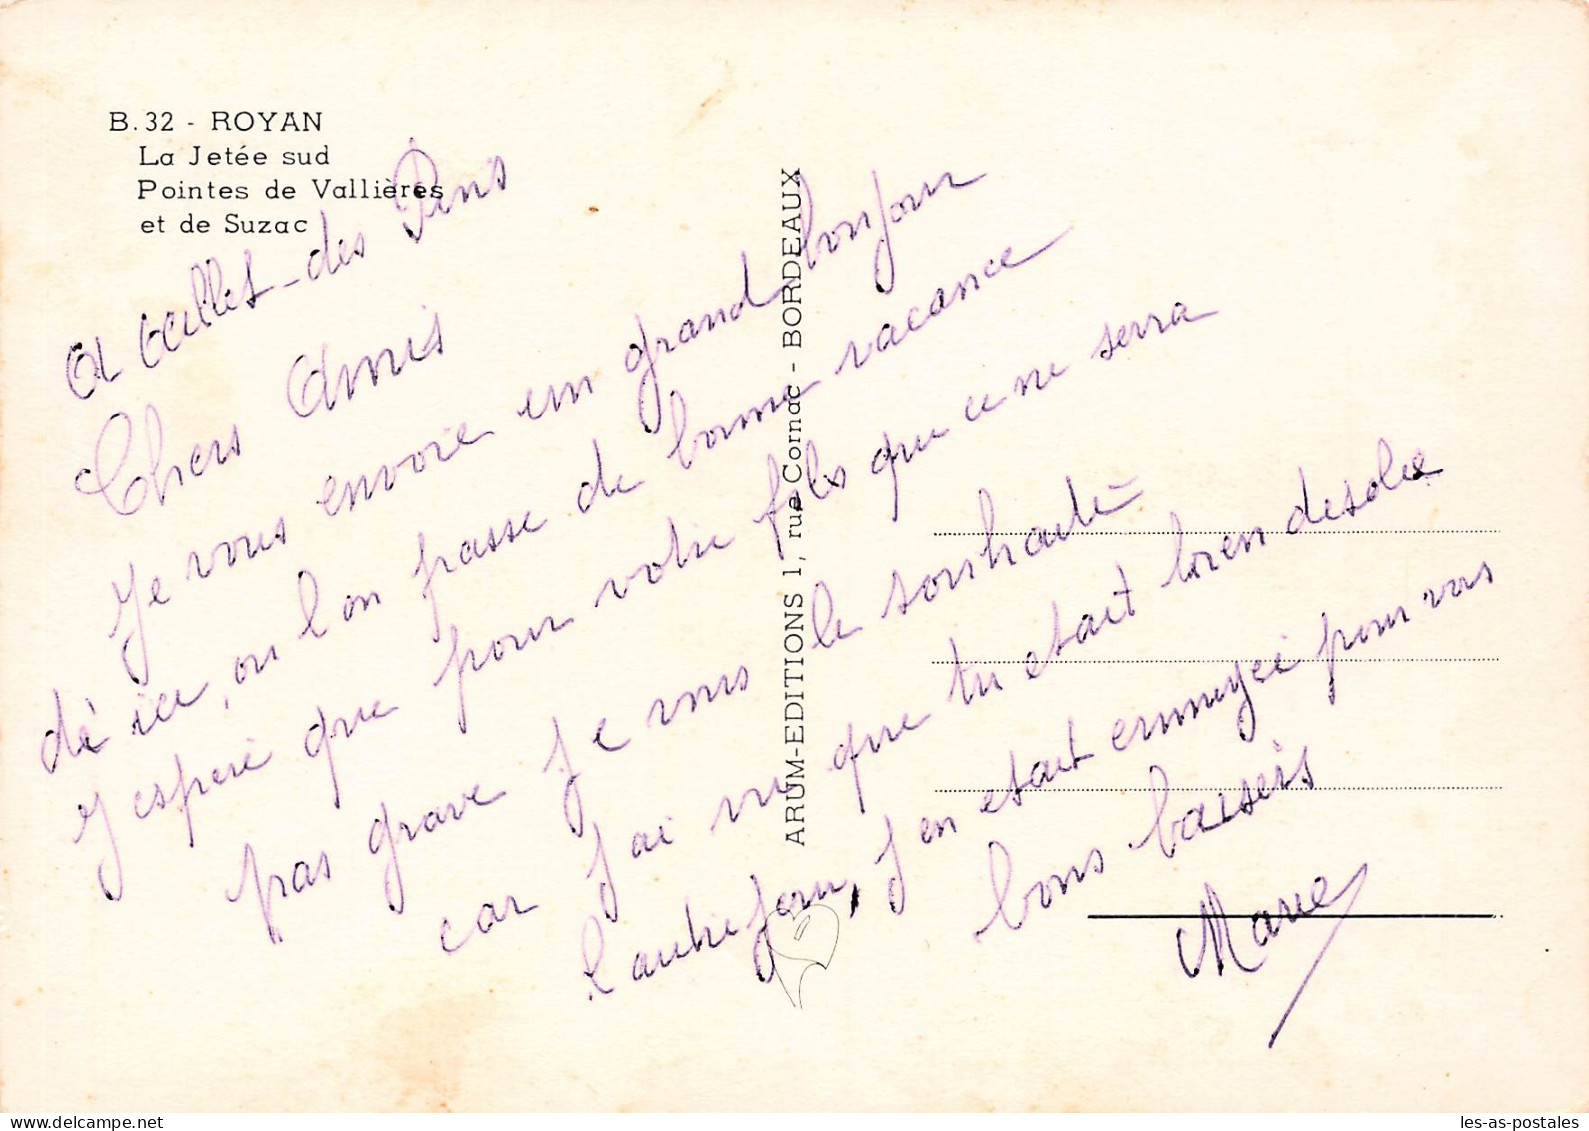 B.32 - ROYAN
La Jetée sud
Pointes de Vallières
et de Suzac
ARUM-EDITIONS 1, rue Cornac - BORDEAUX
des Pins
Chers Amis
Je vous envoie un grand bonjour
dè ici, ou l'on passe de bonne vacance
J'esperè que pour votre fils que ce ne serra
pas grave Je vous le souhaitè
car J'ai vu que tu etait bien desolee
l'autre Jour, J'en etait ennuyei pour vous
bons baisers
Marie
delcampe.net
les-as-postales